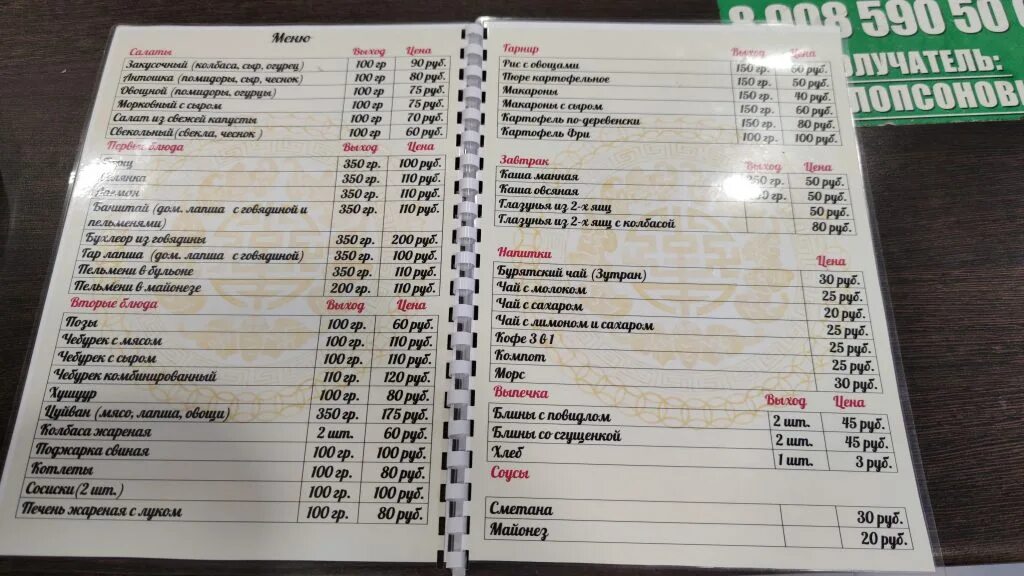 Меню
Салаты Выход Цена
Закусочный (колбаса, сыр, огурец) 100 гр 90 руб.
Антошка (помидоры, сыр, чеснок) 100 гр 80 руб.
Овощной (помидоры, огурцы) 100 гр 75 руб.
Морковный с сыром 100 гр 75 руб.
Салат из свежей капусты 100 гр 70 руб.
Свекольный (свекла, чеснок ) 100 гр 60 руб.
Первые блюда Выход Цена
350 гр. 100 руб.
350 гр. 110 руб.
350 гр. 110 руб.
Банштай (дом. лапша с говядиной и пельменями) 350 гр. 110 руб.
Бухлеор из говядины 350 гр. 200 руб.
Гар лапша (дом. лапша с говядиной) 350 гр. 100 руб.
Пельмени в бульоне 350 гр. 110 руб.
Пельмени в майонезе 200 гр. 110 руб.
Вторые блюда Выход Цена
Позы 100 гр. 60 руб.
Чебурек с мясом 100 гр. 110 руб.
Чебурек с сыром 100 гр. 110 руб.
Чебурек комбинированный 110 гр. 120 руб.
Хушуур 100 гр. 80 руб.
Цуйван (мясо, лапша, овощи) 350 гр. 175 руб.
Колбаса жареная 2 шт. 60 руб.
Поджарка свиная 100 гр. 100 руб.
Котлеты 100 гр. 80 руб.
Сосиски(2 шт.) 100 гр. 100 руб.
Печень жареная с луком 100 гр. 80 руб.
Гарнир Выход Цена
Рис с овощами 150 гр. 60 руб.
Пюре картофельное 150 гр. 50 руб.
Макароны 150 гр. 40 руб.
Макароны с сыром 150 гр. 60 руб.
Картофель по-деревенски 150 гр. 80 руб.
Картофель Фри 100 гр. 100 руб.
Завтрак Выход Цена
Каша манная 250 гр. 50 руб.
Каша овсяная гр. 50 руб.
Глазунья из 2-х яиц 50 руб.
Глазунья из 2-х яиц с колбасой 80 руб.
Напитки Цена
Бурятский чай (Зутран) 30 руб.
Чай с молоком 25 руб.
Чай с сахаром 20 руб.
Чай с лимоном и сахаром 25 руб.
Кофе 3 в 1 25 руб.
Компот 25 руб.
Морс 30 руб.
Выпечка Выход Цена
Блины с повидлом 2 шт. 45 руб.
Блины со сгущенкой 2 шт. 45 руб.
Хлеб 1 шт. 3 руб.
Соусы
Сметана 30 руб.
Майонез 20 руб.
8 908 590 50
ОЛУЧАТЕЛЬ:
ЛОПСОНОВ